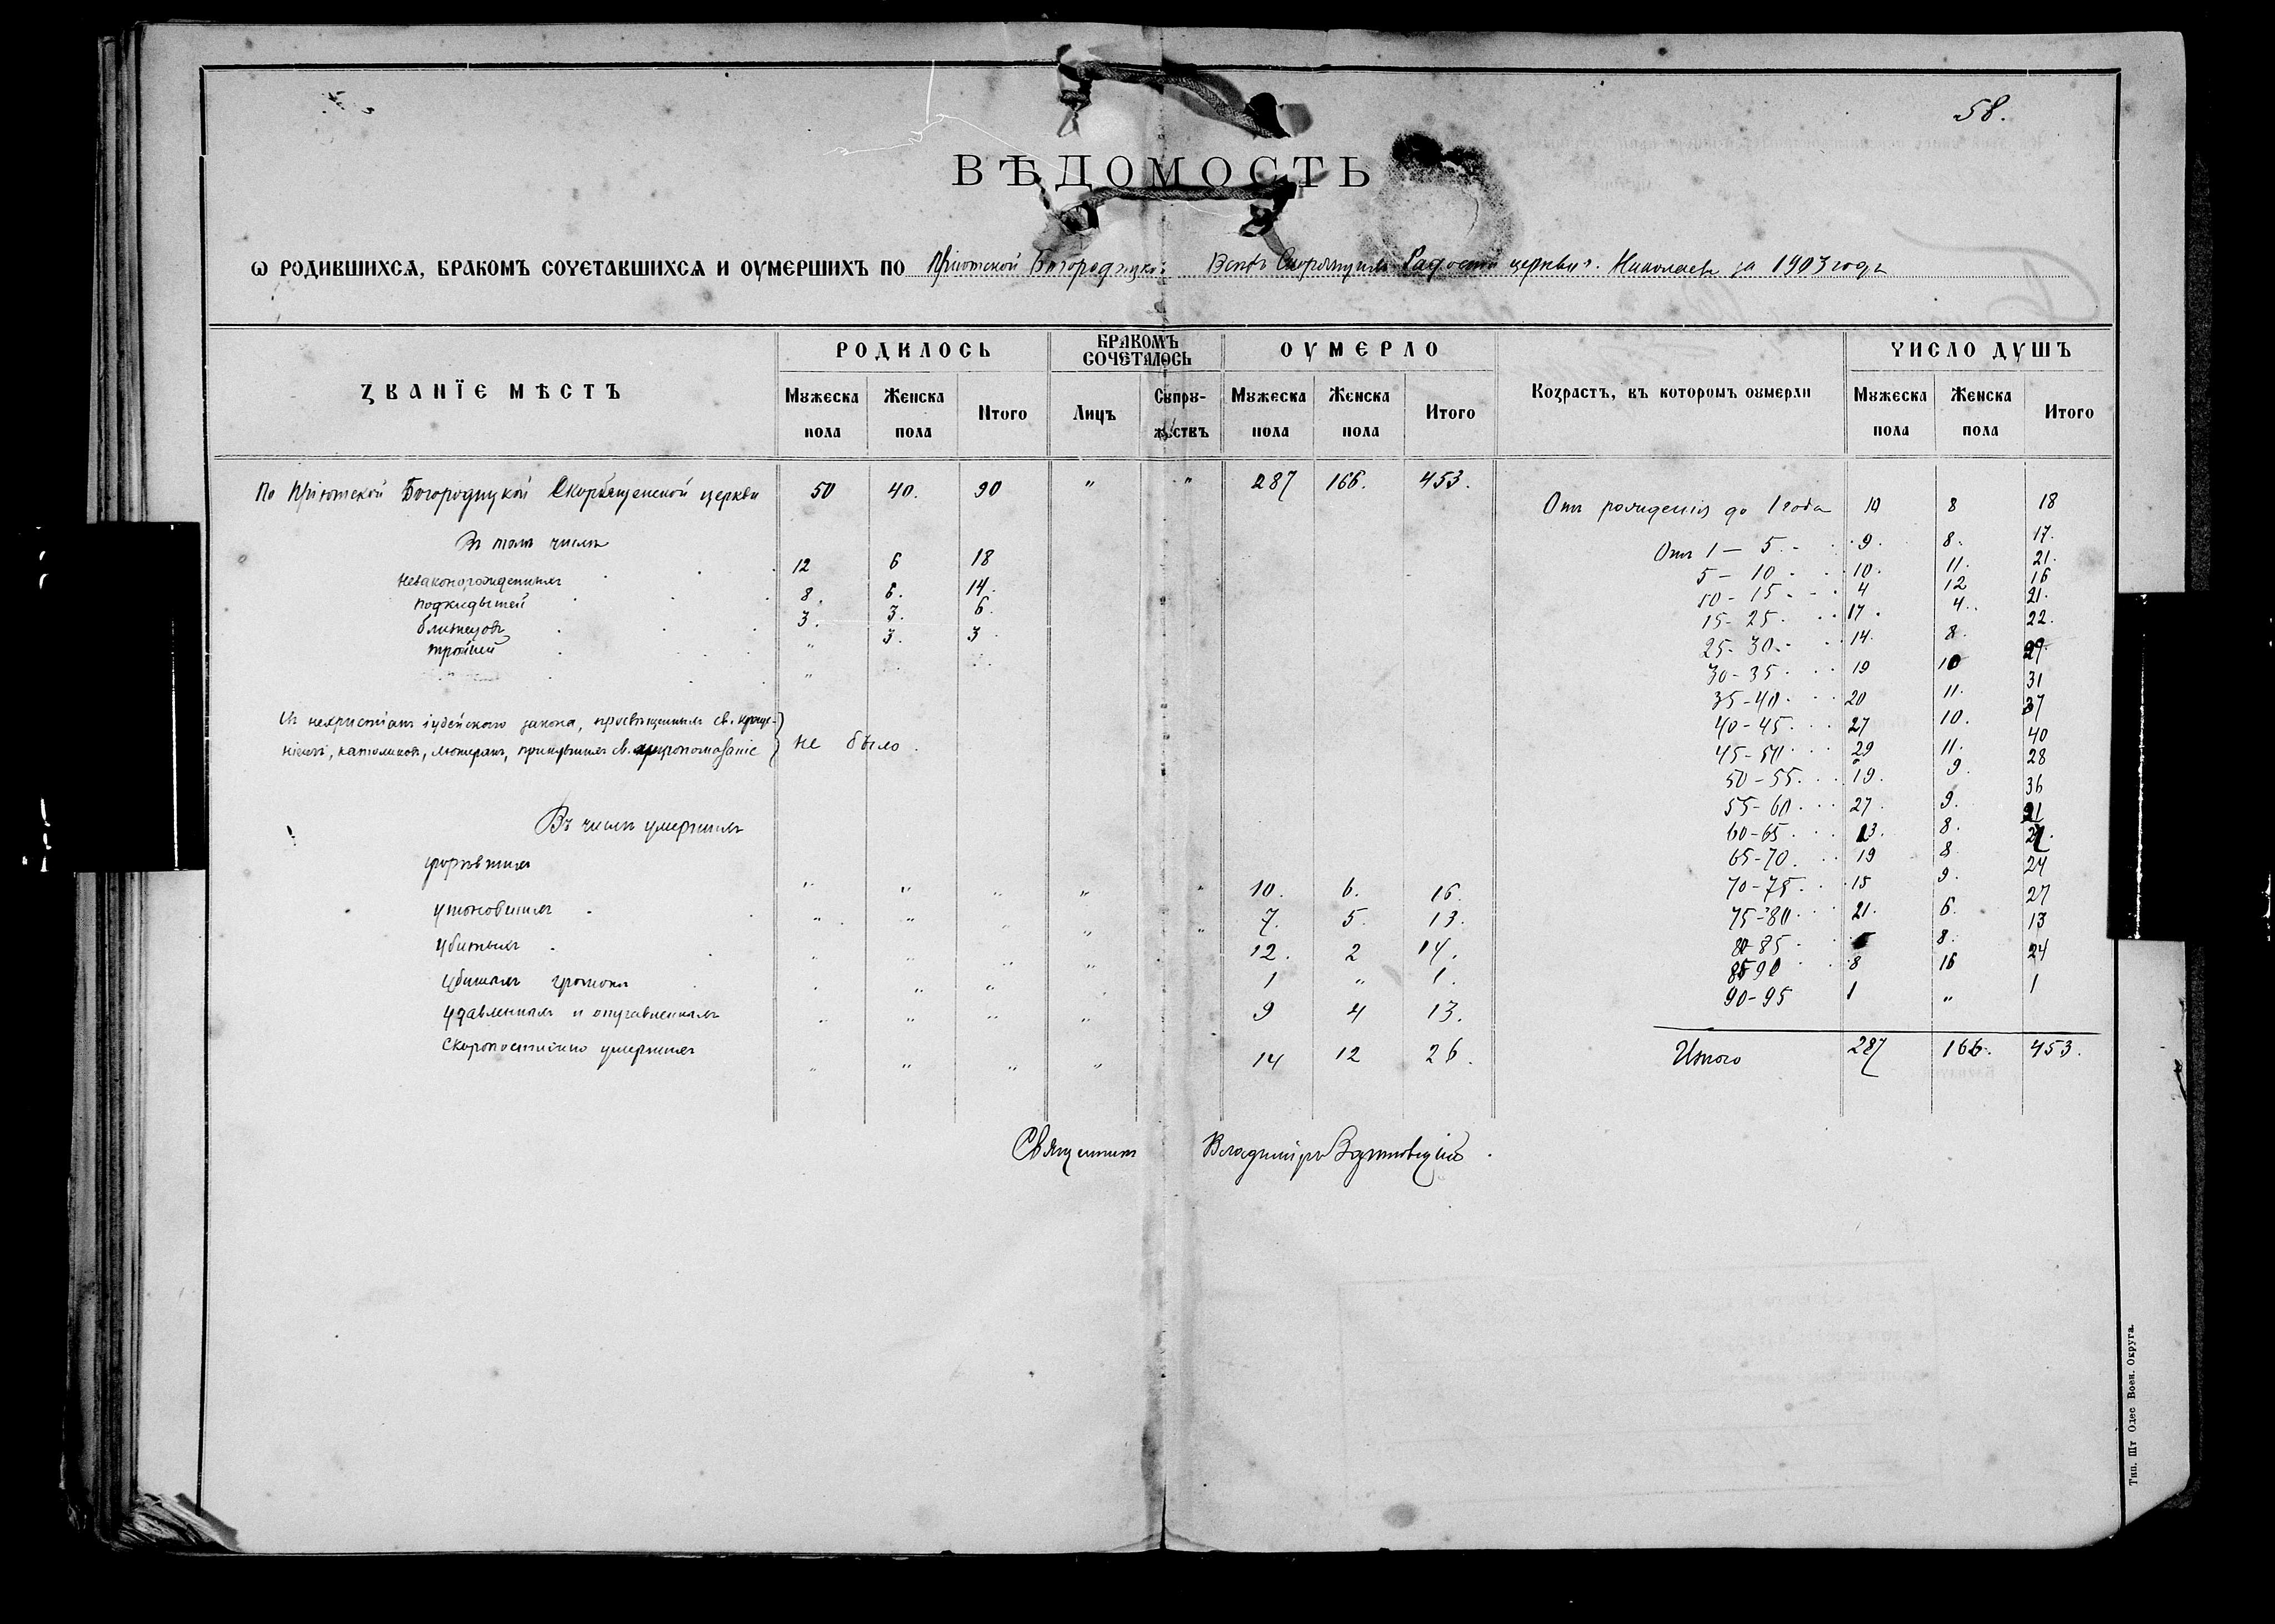 58.
ВѢДОМОСТЬ
Ѡ РОДИВШИХСѦ, БРАКОМЪ СОЧЕТАВШИХСѦ И ОУМЕРШИХЪ ПО Пріютской Богородицкой Всѣхъ Скорбящихъ Радости церкви г. Николаева за 1903 годъ
ЗВАНЇЕ МѢСТЪ
РОДИЛОСЬ
БРАКОМЪ СОЧЕТАЛОСЬ
ОУМЕРЛО
Возрастъ, въ которомъ оумерли
ЧИСЛО ДУШЪ
Мужеска пола Женска пола Итого Лицъ Супружествъ Мужеска пола Женска пола Итого Мужеска пола Женска пола Итого
По Пріютской Богородицкой Скорбященской церкви 50 40. 90 " " 287 166. 453.
Въ томъ числѣ
незаконорожденныхъ 12 6 18
подкидышей 8. 6. 14.
близнецовъ 3. 3. 6.
тройней " 3. 3
Изъ нехристіанъ іудейскаго закона, просвѣщенныхъ св. креще-
ніемъ, католиковъ, лютеранъ, принявшихъ св. миропомазаніе } не было.
Въ числѣ умершихъ
" " " " " 10. 6. 16.
утонувшихъ " " " " " 7. 5. 13.
убитыхъ " " " " 12. 2 14.
убитыхъ громомъ " " " 1 " 1.
удавленныхъ и " " " " 9 4 13.
Скоропостижно умершихъ " " " " 14 12 26.
Отъ рожденія до 1 года 10 8 18
Отъ 1 — 5 9. 8. 17.
5 — 10 10. 11. 21.
10 - 15 4 12 16
15 - 25 17. 4. 21.
25 - 30 14. 8. 22.
30 - 35 19 10 29.
35 - 40 20 11. 31
40 - 45 27 10. 37
45 - 50 29 11. 40
50 - 55 19. 9. 28
55 - 60 27. 9. 36
60 - 65 13. 8. 21
65 - 70 19 8 27.
70 - 75 15 9. 24
75 - 80 21. 6. 27
80 - 85 5 8. 13
85 90 8 16 24
90 - 95 1 " 1
Итого 287 166. 453.
Священникъ Владиміръ
Тип. Шт Одес Воен. Округа.